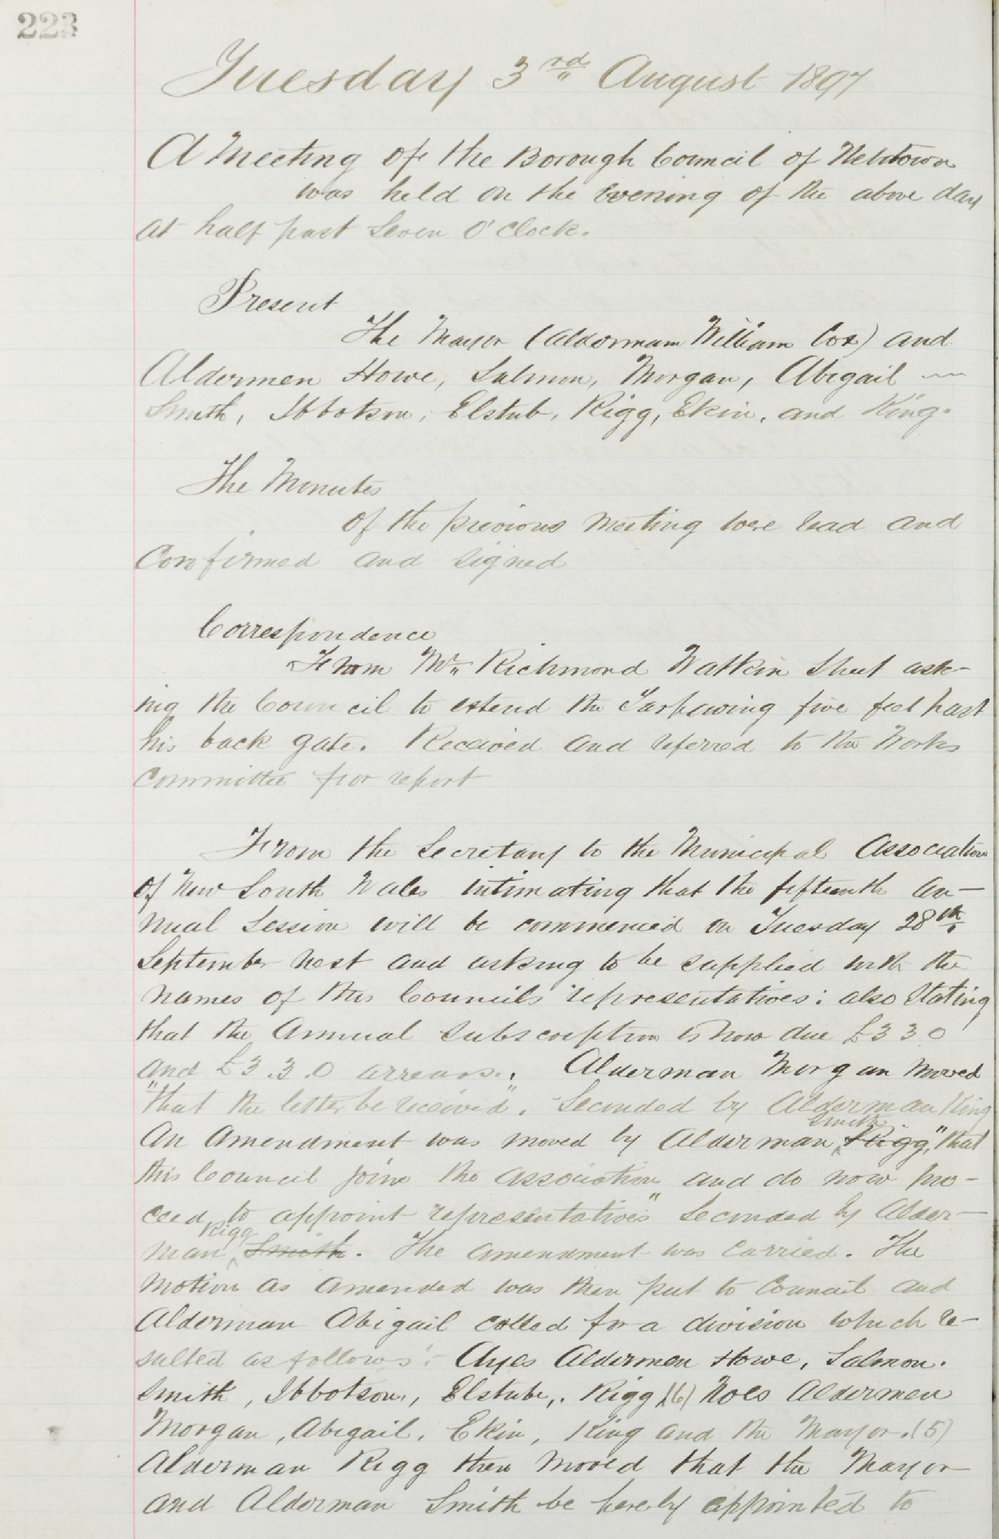 223
Tuesday 3rd August 1897
A Meeting of the Borough Council of Newtown
was held on the evening of the above day
at half past Seven O'Clock.
Present
The Mayor (Alderman William Cox) and
Aldermen Howe, Salmon, Morgan, Abigail
Smith, Ibbotson, Elstub, Rigg, Ekin, and King.
The Minutes
of the previous meeting were read and
Confirmed and signed
Correspondence
From Mr. Richmond Watkin Street ask-
ing the Council to extend the Tarpaving five feet past
his back gate. Received and referred to the Works
Committee for report
From the Secretary to the Municipal Association
of New South Wales intimating that the fifteenth An-
nual Session will be commenced on Tuesday 28th
September next and asking to be supplied with the
names of this Councils representatives: also Stating
that the Annual Subscription is now due £3 3 0
and £3.3.0 arrears. Alderman Morgan moved
"that the letter be received". Seconded by Alderman King
Smith
An Amendment was moved by Alderman Rigg, "that
this Council joins the Association and do now pro-
ceed to appoint representatives" Seconded by Alder-
Rigg
man Smith. The amendment was carried. The
motion as amended was then put to Council and
Alderman Abigail called for a division which re-
sulted as follows:- Ayes Aldermen Howe, Salmon.
Smith, Ibbotson, Elstub, Rigg (6) Noes Aldermen
Morgan, Abigail, Ekin, King and the Mayor. (5)
Alderman Rigg then moved that the Mayor
and Alderman Smith be hereby appointed to